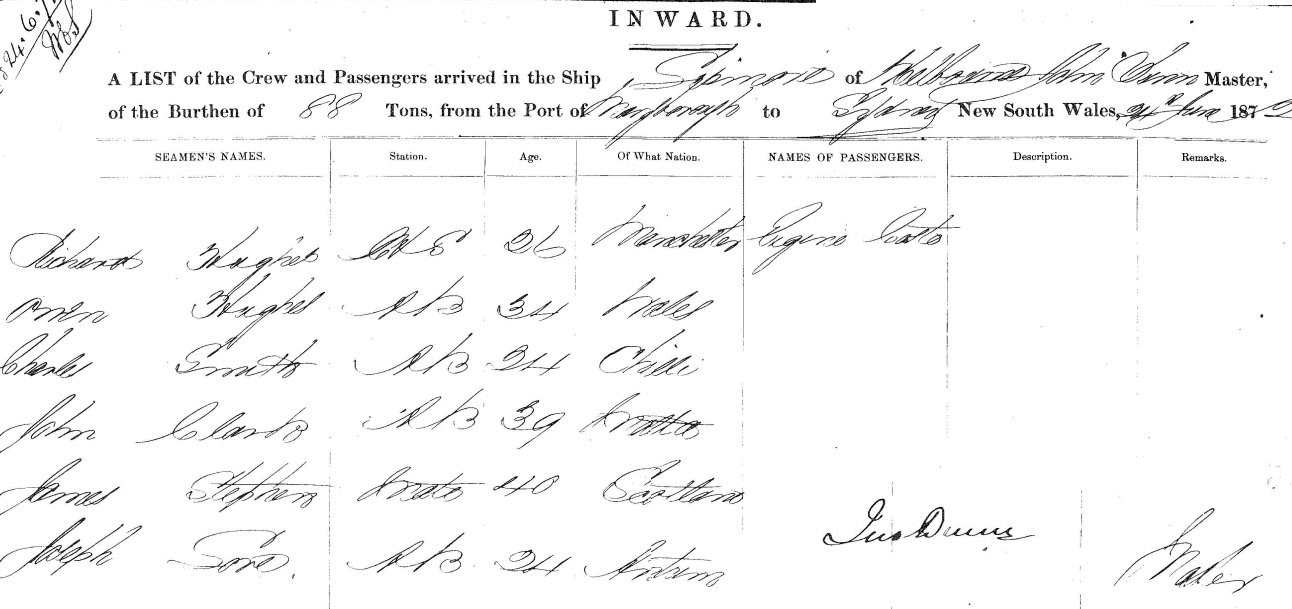 24.6.7
INWARD.
A LIST of the Crew and Passengers arrived in the Ship of Melbourne John Master,
of the Burthen of 88 Tons, from the Port of Maryborough to Sydney New South Wales, 24th June 1872
SEAMEN'S NAMES. Station. Age. Of What Nation. NAMES OF PASSENGERS. Description. Remarks.
Richard Hughes 36 Manchester Eugene
Owen Hughes AB 34 Wales
Charles Smith AB 24 Chilli
John Clark AB 39
James Stephens 40 Scotland
Joseph AB 24
Jno Dunn